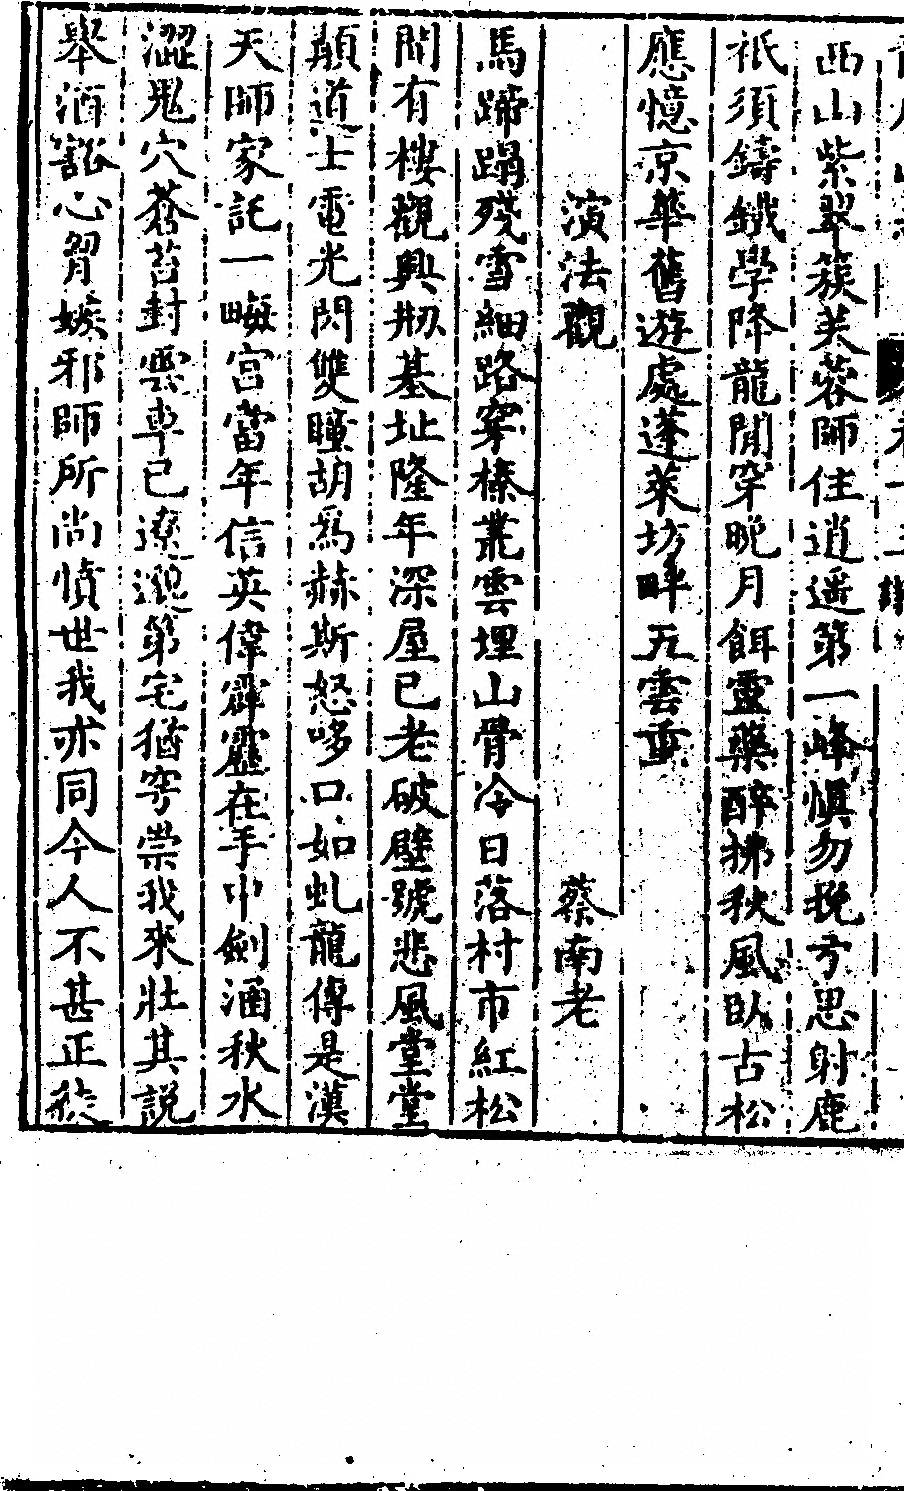 西山紫翠蔟芙蓉師住逍遥第一峰愼勿挽弓思射鹿
祇須鑄鐵學降龍閒穿晚月餌靈藥醉拂秋風臥古松
應憶京華舊遊處蓬萊坊畔五雲重
演法觀 蔡南老
馬蹄蹋殘雪細路穿榛叢雲埋山骨冷日落村市紅松
間有樓觀興剏基址隆年深屋已老破壁號悲風堂堂
顛道士電光閃雙瞳胡爲赫斯怒哆口如虬龍傳是漢
天師家託一畮宫當年信英偉霹靂在手中劍涵秋水
澀鬼穴蒼苔封雲車已遼邈第宅猶穹崇我來壯其説
舉酒豁心胷嫉邪師所尚憤世我亦同今人不甚正從